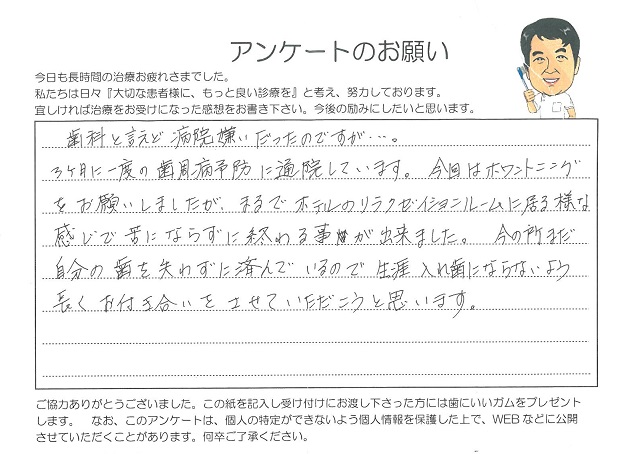 アンケートのお願い
今日も長時間の治療お疲れさまでした。
私たちは日々『大切な患者様に、もっと良い診療を』と考え、努力しております。
宜しければ治療をお受けになった感想をお書き下さい。今後の励みにしたいと思います。
歯科と言えど病院嫌いだったのですが…。
3ヶ月に一度の歯周病予防に通院しています。今回はホワイトニング
をお願いしましたが、まるでホテルのリラクゼイションルームに居る様な
感じで苦にならずに終わる事が出来ました。今の所まだ
自分の歯を失わずに済んでいるので生涯入れ歯にならないよう
長くお付き合いをさせていただこうと思います。
ご協力ありがとうございました。この紙を記入し受け付けにお渡し下さった方には歯にいいガムをプレゼント
します。 なお、このアンケートは、個人の特定ができないよう個人情報を保護した上で、WEBなどに公開
させていただくことがあります。何卒ご了承ください。